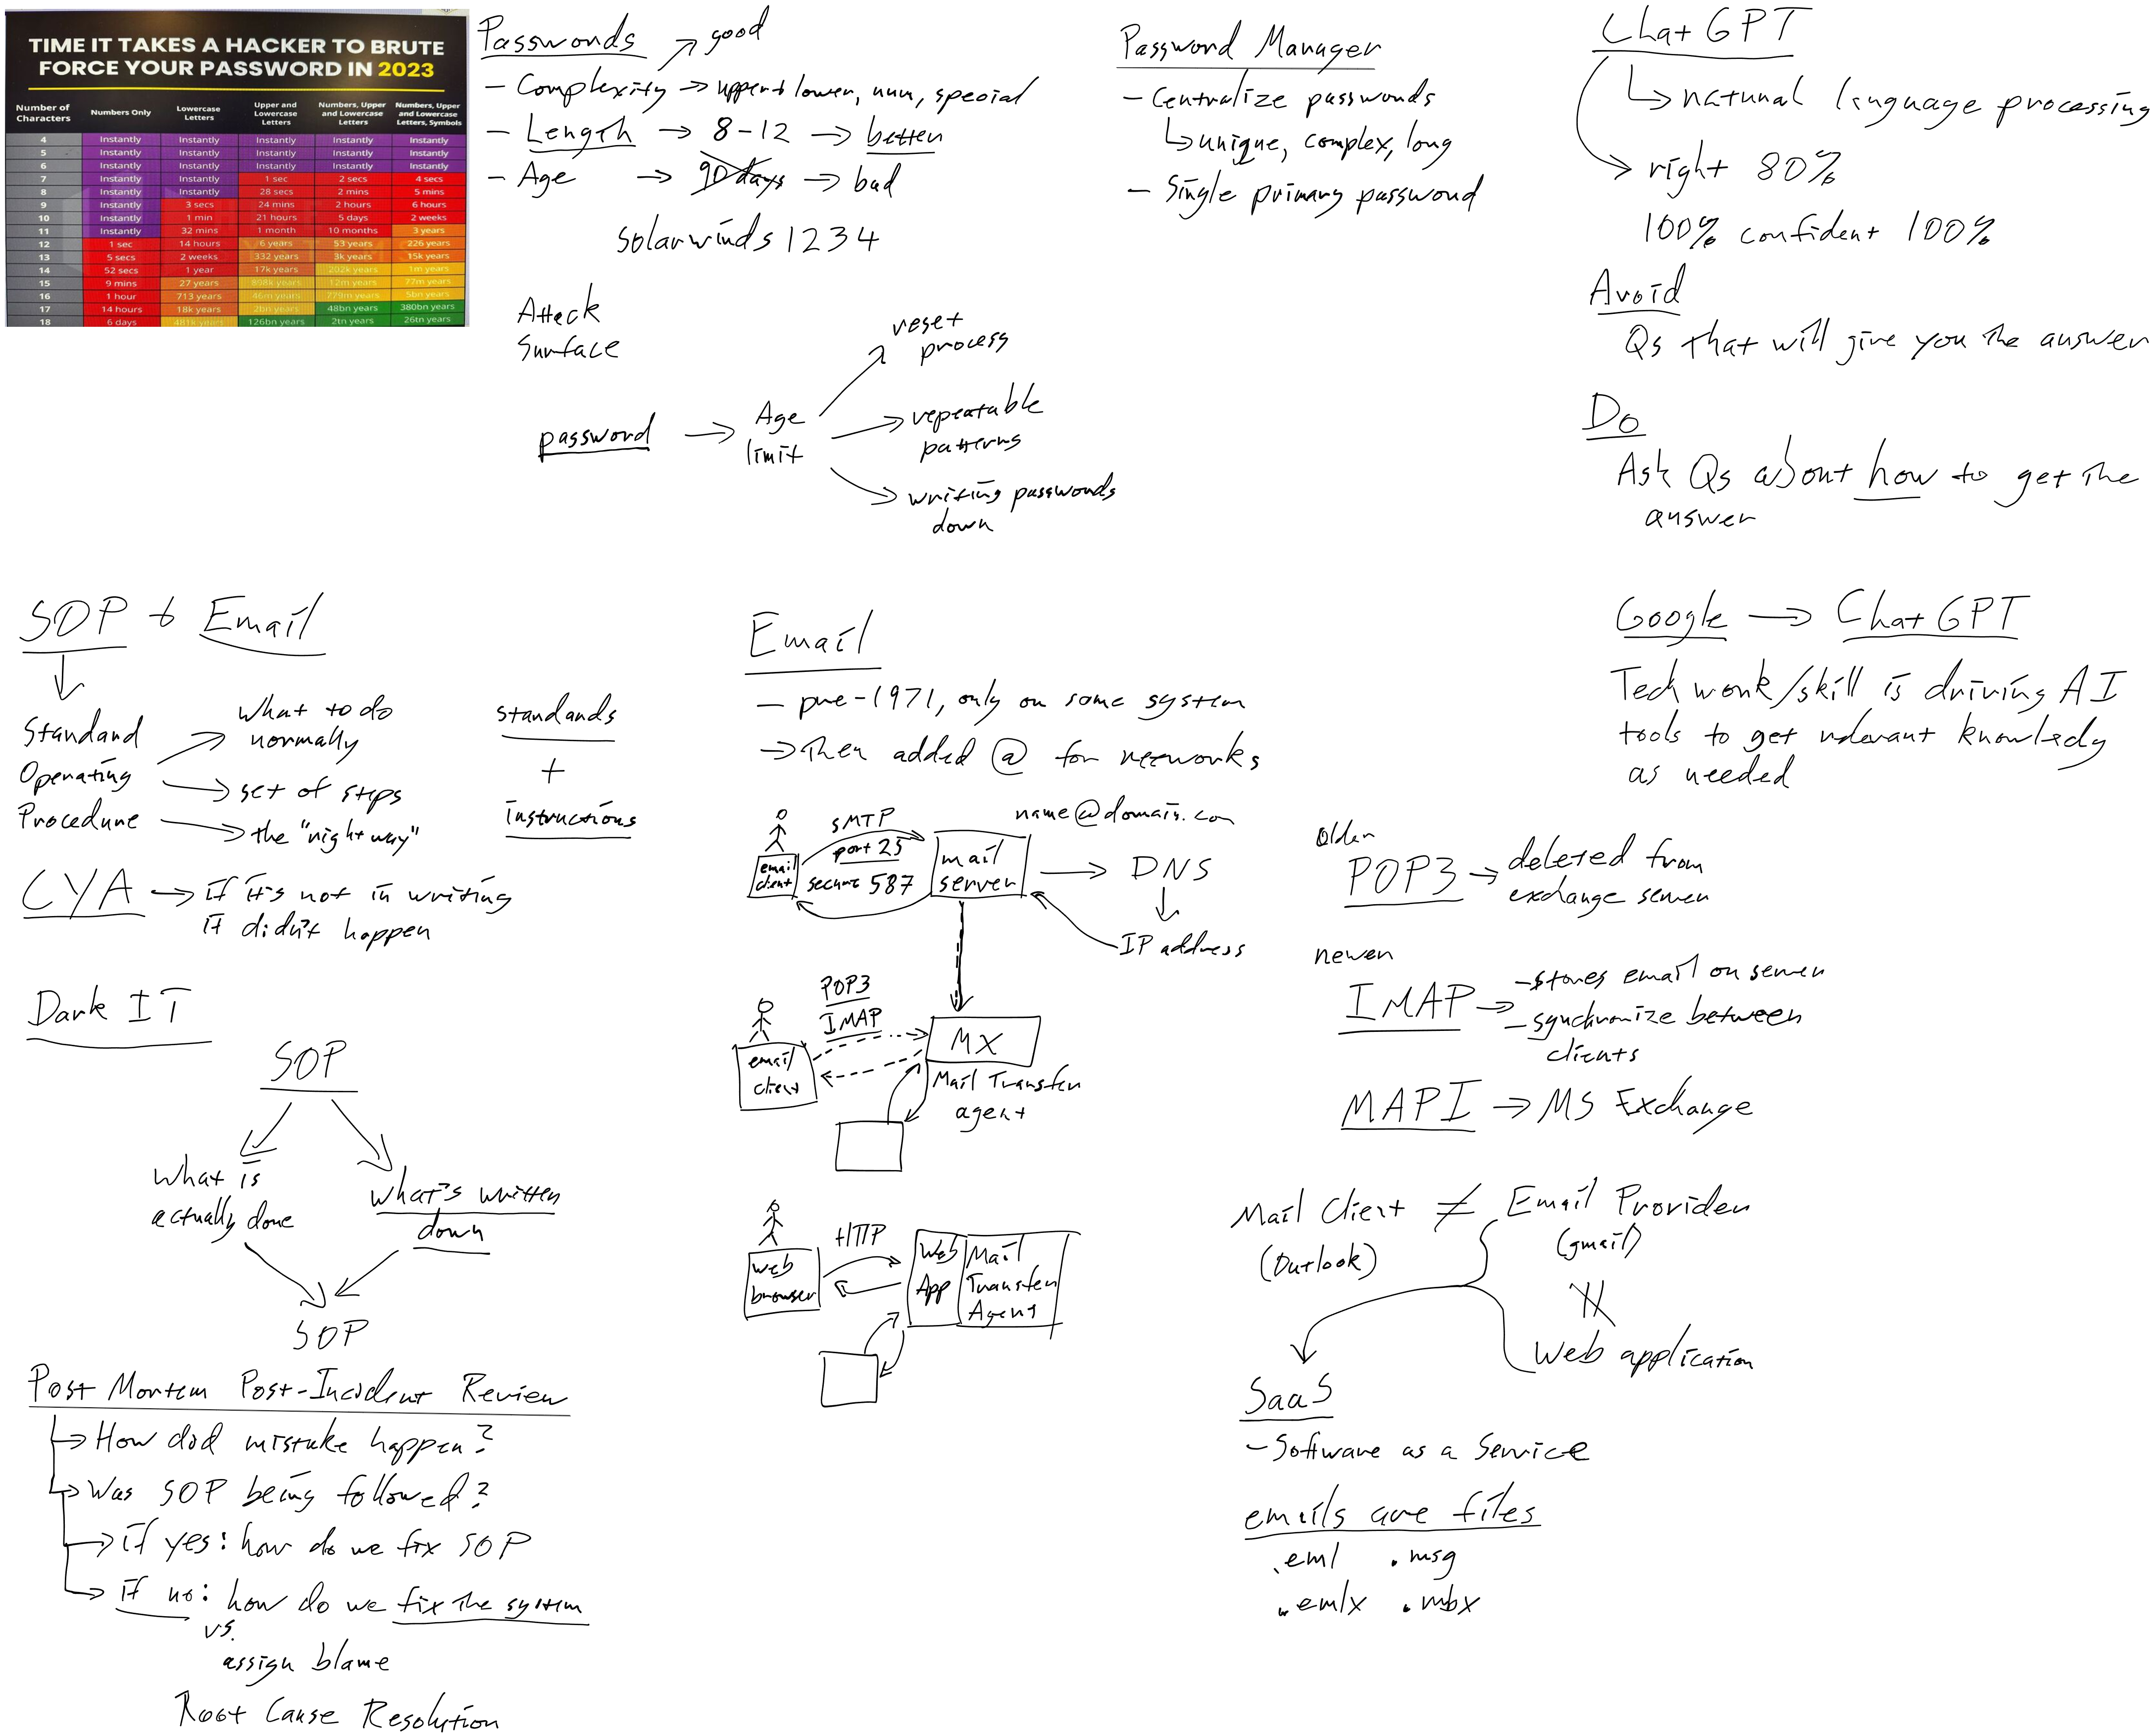 TIME IT TAKES A HACKER TO BRUTE
FORCE YOUR PASSWORD IN 2023
Number of Characters Numbers Only Lowercase Letters Upper and Lowercase Letters Numbers, Upper and Lowercase Letters Numbers, Upper and Lowercase Letters, Symbols
4 Instantly Instantly Instantly Instantly Instantly
5 Instantly Instantly Instantly Instantly Instantly
6 Instantly Instantly Instantly Instantly Instantly
7 Instantly Instantly 1 sec 2 secs 4 secs
8 Instantly Instantly 28 secs 2 mins 5 mins
9 Instantly 3 secs 24 mins 2 hours 6 hours
10 Instantly 1 min 21 hours 5 days 2 weeks
11 Instantly 32 mins 1 month 10 months 3 years
12 1 sec 14 hours 6 years 53 years 226 years
13 5 secs 2 weeks 332 years 3k years 15k years
14 52 secs 1 year 17k years 202k years 1m years
15 9 mins 27 years 898k years 12m years 77m years
16 1 hour 713 years 46m years 779m years 5bn years
17 14 hours 18k years 2bn years 48bn years 380bn years
18 6 days 481k years 126bn years 2tn years 26tn years
Passwords
good
- Complexity → upper + lower, num, special
- Length → 8-12 → better
- Age → 90 days → bad
solarwinds1234
Attack
Surface
password → Age
limit
reset
process
repeatable
patterns
writing passwords
down
Password Manager
- Centralize passwords
unique, complex, long
- Single primary password
ChatGPT
natural language processing
right 80%
100% confident 100%
Avoid
Qs that will give you the answer
Do
Ask Qs about how to get the
answer
SOP + Email
Standard
Operating
Procedure
what to do
normally
set of steps
the "right way"
standards
+
instructions
CYA → if it's not in writing
it didn't happen
Dark IT
SOP
what is
actually done
what's written
down
SOP
Post Mortem Post-Incident Review
How did mistake happen?
Was SOP being followed?
if yes: how do we fix SOP
if no: how do we fix the system
vs.
assign blame
Root Cause Resolution
Email
- pre-1971, only on some system
→ Then added @ for networks
name@domain.com
email
client
SMTP
port 25
secure 587
mail
server
→ DNS
IP address
email
client
POP3
IMAP
MX
Mail Transfer
agent
web
browser
HTTP
Web
App
Mail
Transfer
Agent
Google → ChatGPT
Tech work/skill is driving AI
tools to get relevant knowledg
as needed
older
POP3 → deleted from
exchange server
newer
IMAP → - stores email on server
- synchronize between
clients
MAPI → MS Exchange
Mail Client ≠ Email Provider
(Outlook)
(gmail)
Web application
SaaS
- Software as a Service
emails are files
.eml .msg
.emlx .mbx